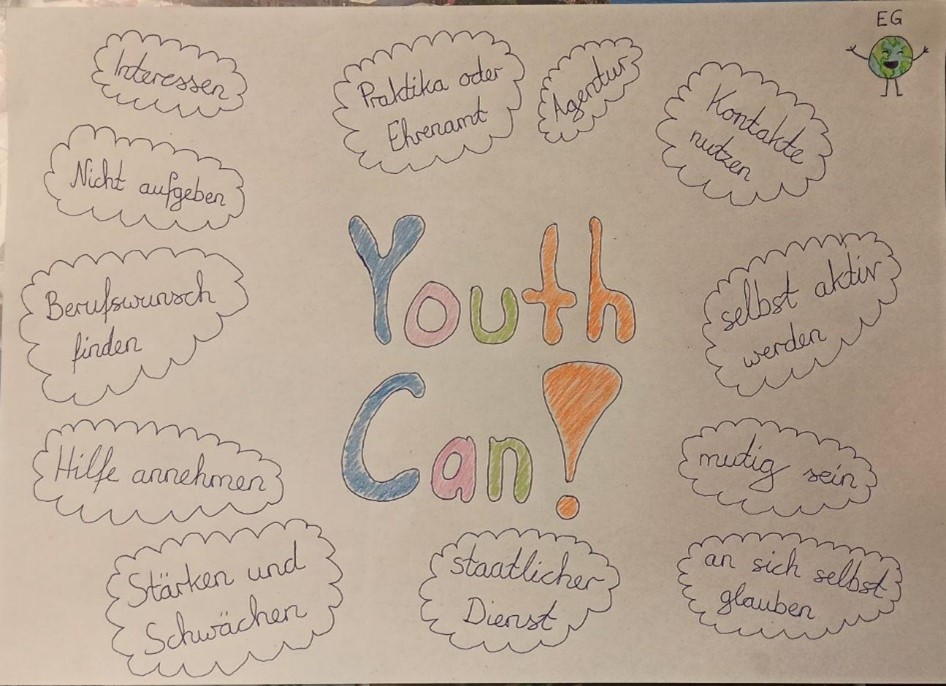 EG
Interessen
Praktika oder
Ehrenamt
Agentur
Kontakte
nutzen
Nicht aufgeben
Youth
Can!
Berufswunsch
finden
selbst aktiv
werden
Hilfe annehmen
mutig sein
Stärken und
Schwächen
staatlicher
Dienst
an sich selbst
glauben